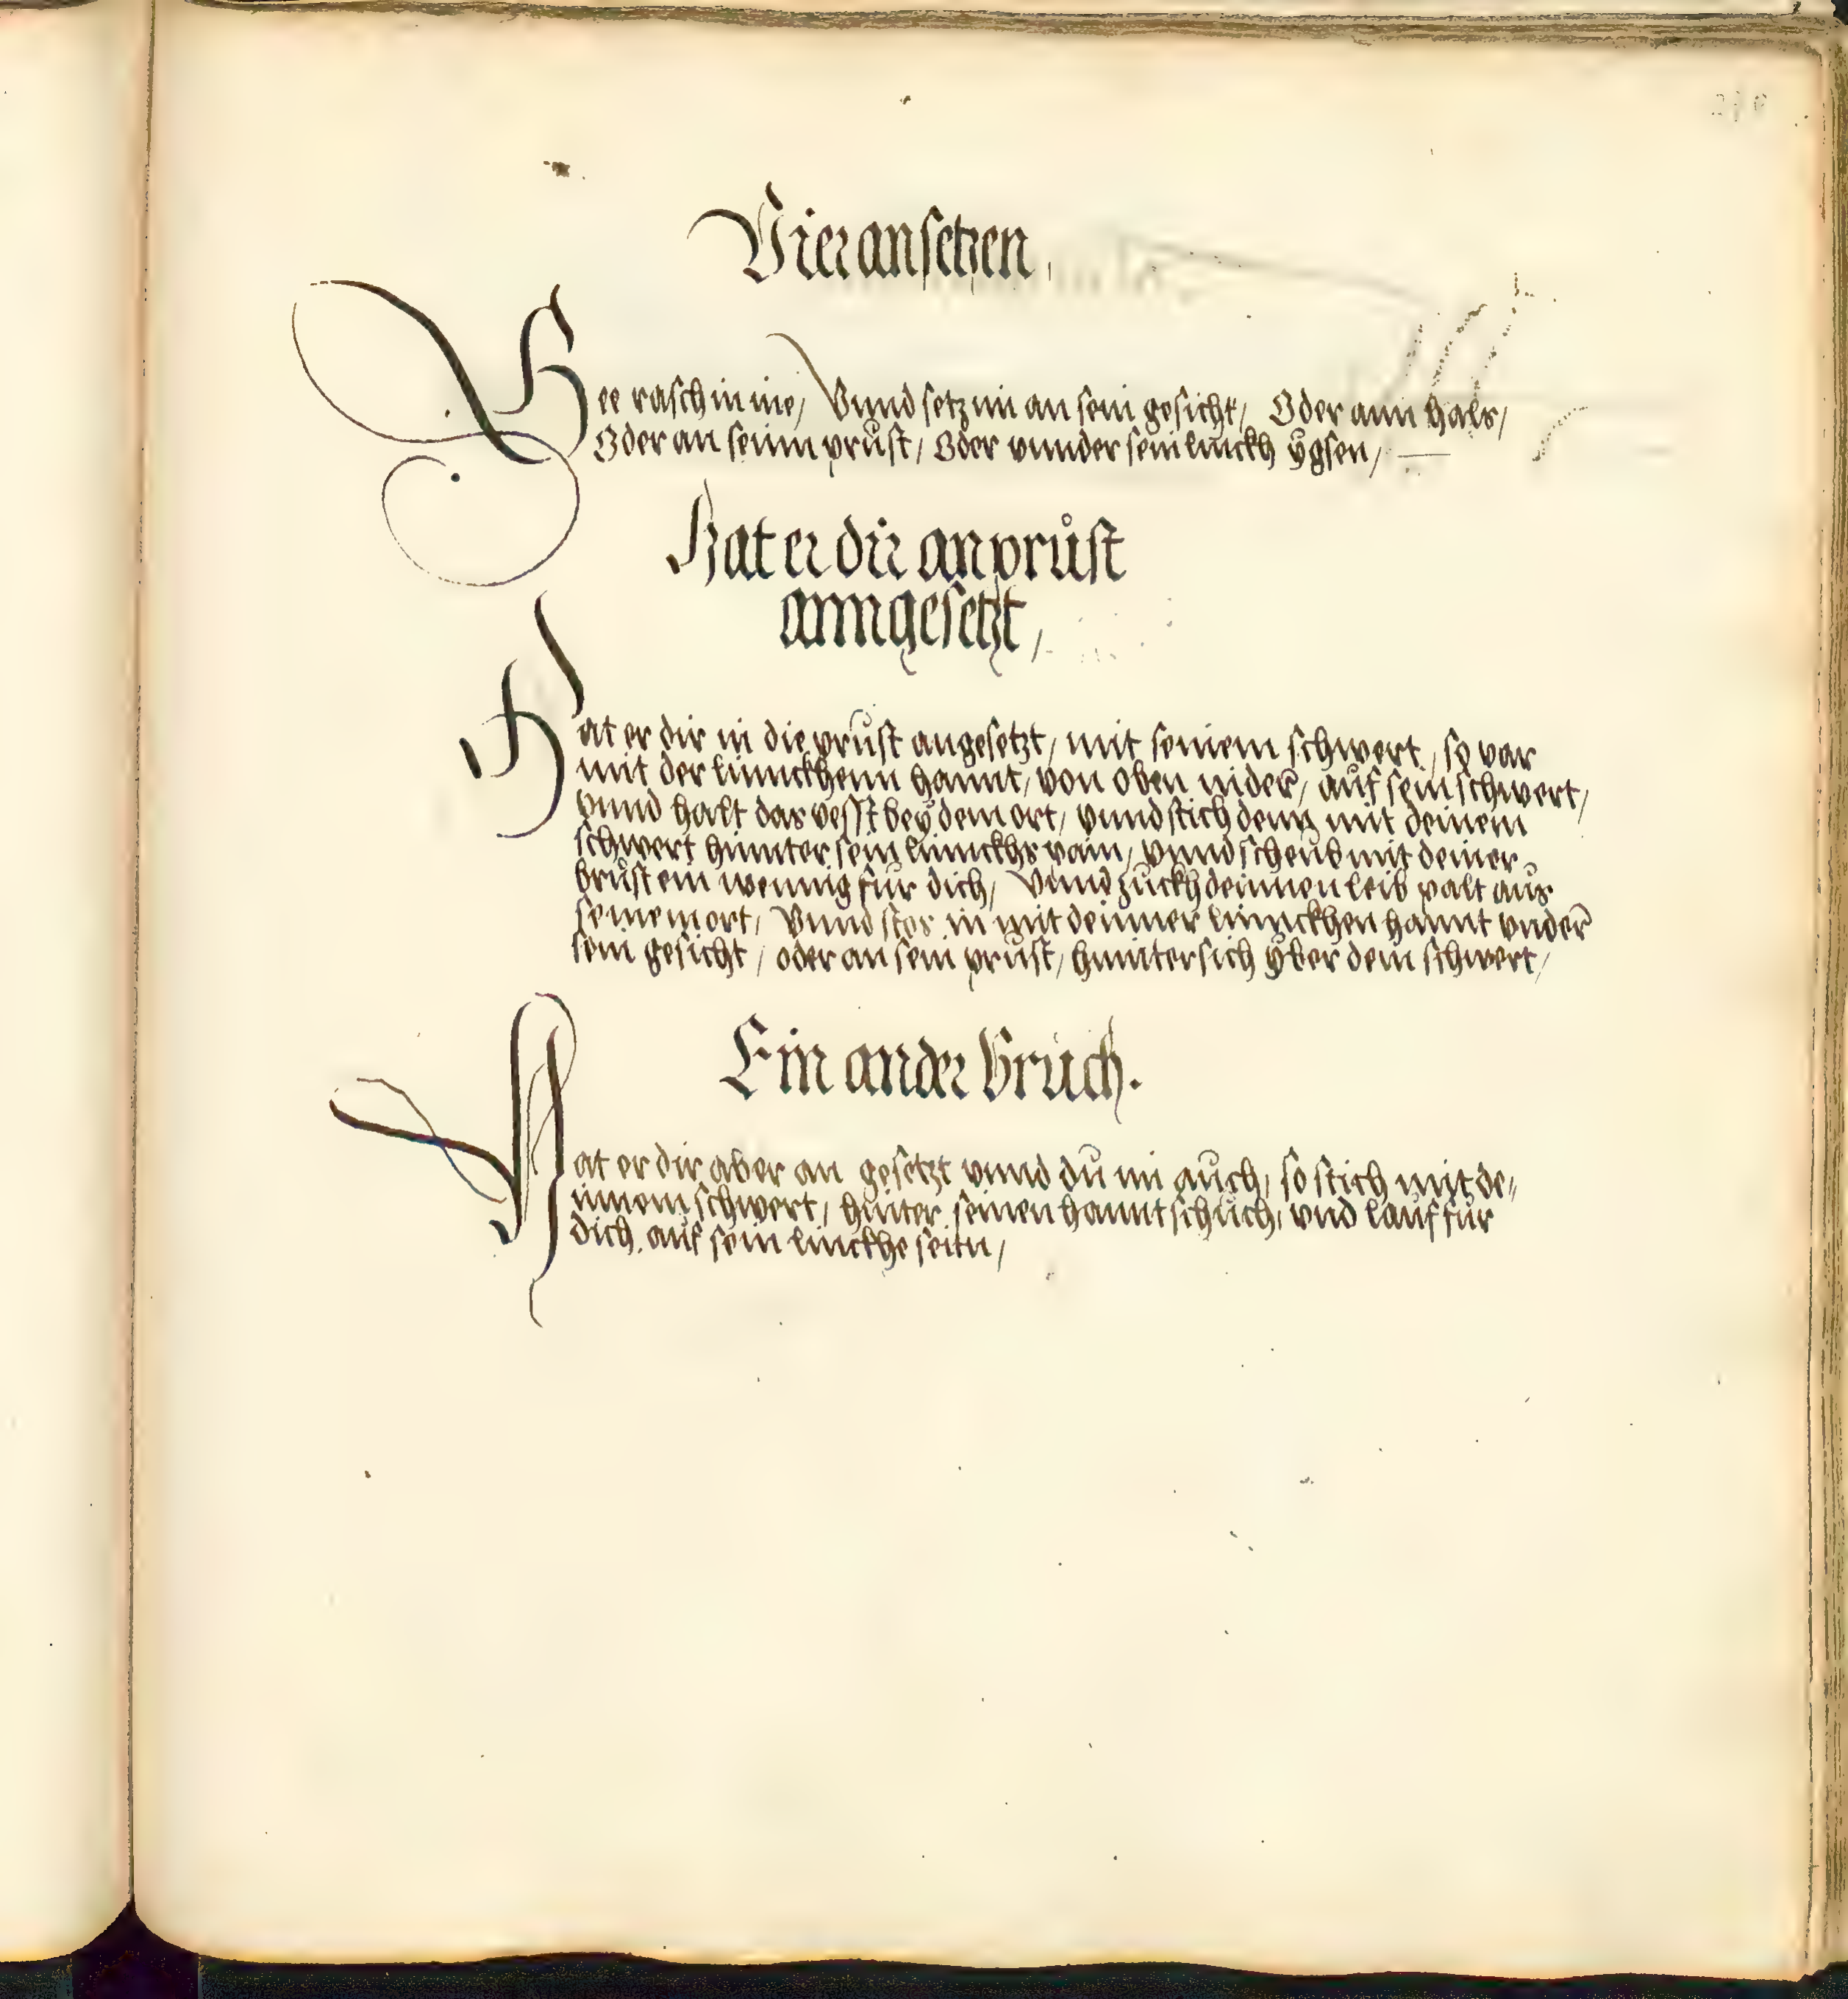 Vier ansetzen,
Gee rasch in ine, Vnnd setz im an sein gesicht, Oder ann hals,
Oder an seinn prust, Oder vnnder sein linckh ÿgsen,
Hat er dir an prust
anngesetzt,
Hat er dir in die prust angesetzt, mit seinem schwert, so var
mit der linnckhenn hannt, von oben nider, auf sein schwert,
vnnd halt das vesst beÿ dem ort, vnnd stich denn mit deinem
schwert hinnter sein linnckhs pain, vnnd scheub mit deiner
brust ein wennig für dich, Vnnd zuckh deinnen leib palt aus
seinem ort, Vnnd stos in mit deinner linnckhen hannt vnder
sein gesicht, oder an sein prust, hinntersich ÿber dein schwert,
Ein ander bruch.
Hat er dir aber an gesetzt vnnd du im auch, so stich mit de„
innem schwert, hinter seinen hanntschuch, vnd lauf für
dich auf sein linckhe seitn,